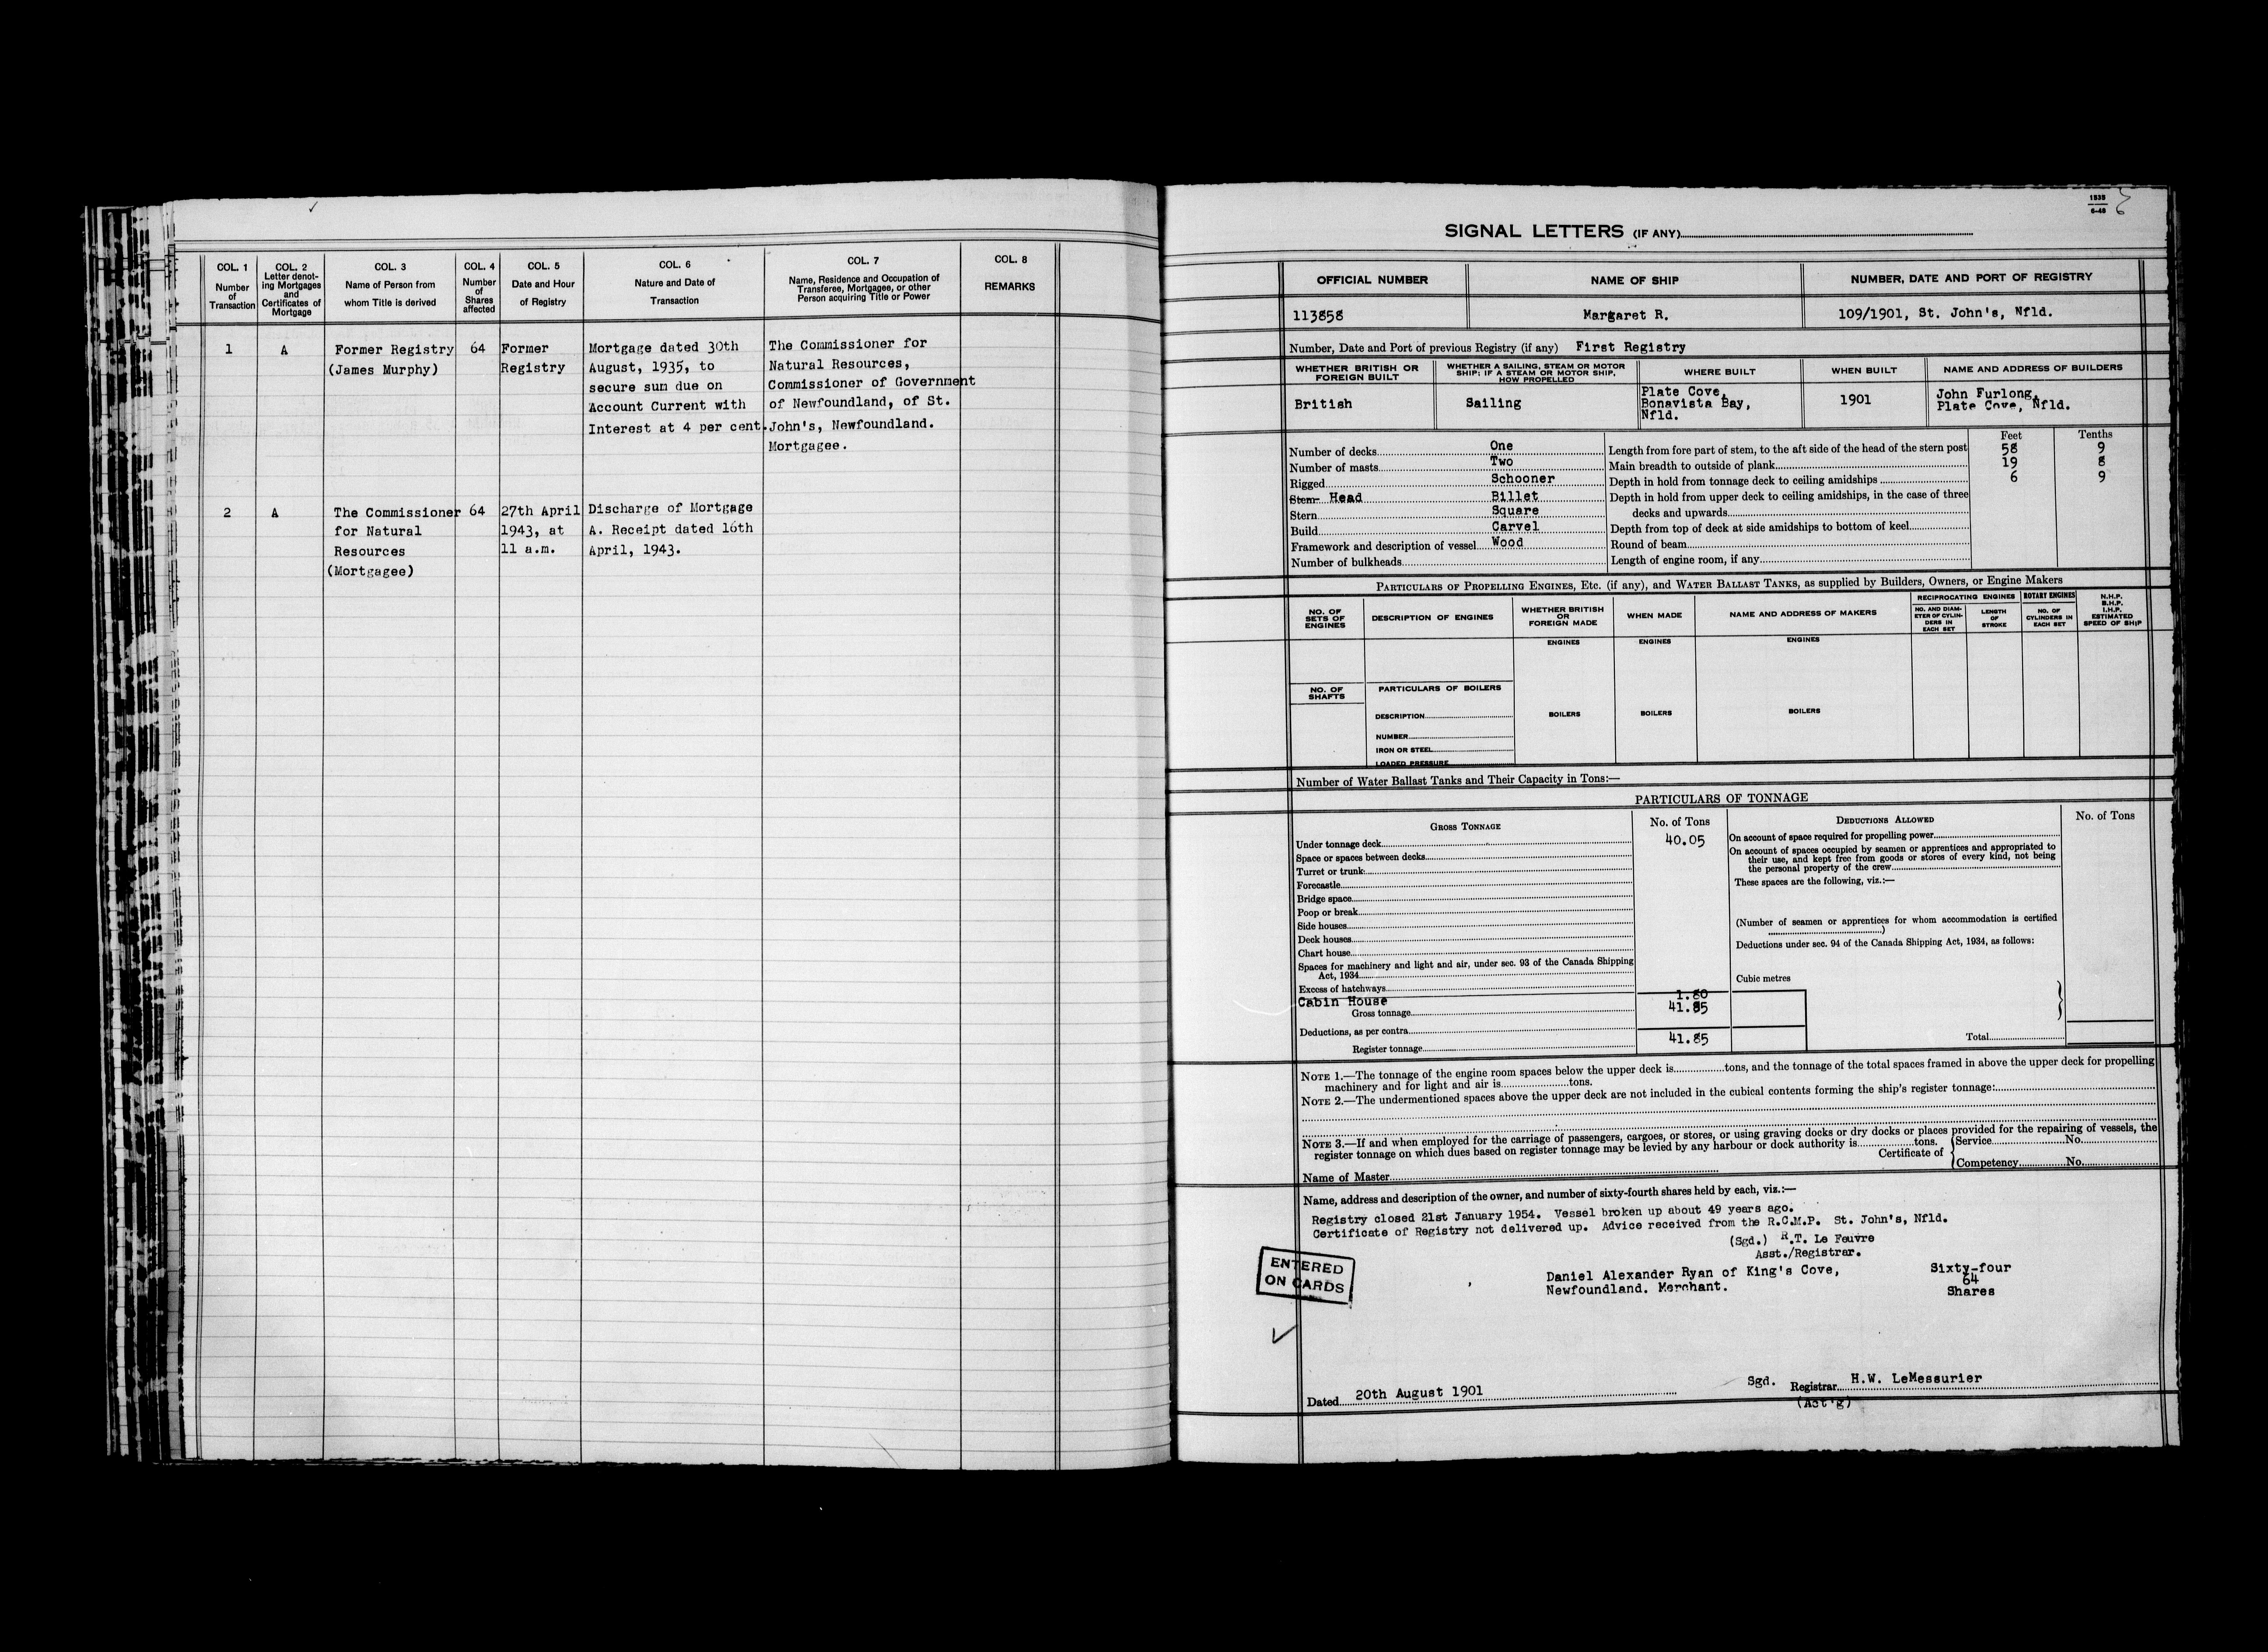 COL. 1
Number
of
Transaction
COL. 2
Letter denot-
ing Mortgages
and
Certificates of
Mortgage
COL. 3
Name of Person from
whom Title is derived
COL. 4
Number
of
Shares
affected
COL. 5
Date and Hour
of Registry
COL. 6
Nature and Date of
Transaction
COL. 7
Name, Residence and Occupation of
Transferee, Mortgagee, or other
Person acquiring Title or Power
COL. 8
REMARKS
1
A
Former Registry
(James Murphy)
64
Former
Registry
Mortgage dated 30th
August, 1935, to
secure sum due on
Account Current with
Interest at 4 per cent.
The Commissioner for
Natural Resources,
Commissioner of Government
of Newfoundland, of St.
John's, Newfoundland.
Mortgagee.
2
A
The Commissioner
for Natural
Resources
(Mortgagee)
64
27th April
1943, at
11 a.m.
Discharge of Mortgage
A. Receipt dated 16th
April, 1943.
1535
6-49
SIGNAL LETTERS (IF ANY)
OFFICIAL NUMBER
NAME OF SHIP
NUMBER, DATE AND PORT OF REGISTRY
113858
Margaret R.
109/1901, St. John's, Nfld.
Number, Date and Port of previous Registry (if any) First Registry
WHETHER BRITISH OR
FOREIGN BUILT
WHETHER A SAILING, STEAM OR MOTOR
SHIP; IF A STEAM OR MOTOR SHIP,
HOW PROPELLED
WHERE BUILT
WHEN BUILT
NAME AND ADDRESS OF BUILDERS
British
Sailing
Plate Cove,
Bonavista Bay,
Nfld.
1901
John Furlong,
Plate Cove, Nfld.
Feet
Tenths
Number of decks One
Number of masts Two
Rigged Schooner
Stem Head Billet
Stern Square
Build Carvel
Framework and description of vessel Wood
Number of bulkheads
Length from fore part of stem, to the aft side of the head of the stern post 58 9
Main breadth to outside of plank 19 8
Depth in hold from tonnage deck to ceiling amidships 6 9
Depth in hold from upper deck to ceiling amidships, in the case of three
decks and upwards
Depth from top of deck at side amidships to bottom of keel
Round of beam
Length of engine room, if any
PARTICULARS OF PROPELLING ENGINES, ETC. (if any), and WATER BALLAST TANKS, as supplied by Builders, Owners, or Engine Makers
NO. OF
SETS OF
ENGINES
DESCRIPTION OF ENGINES
WHETHER BRITISH
OR
FOREIGN MADE
WHEN MADE
NAME AND ADDRESS OF MAKERS
RECIPROCATING ENGINES
NO. AND DIAM-
ETER OF CYLIN-
DERS IN
EACH SET
LENGTH
OF
STROKE
ROTARY ENGINES
NO. OF
CYLINDERS IN
EACH SET
N.H.P.
B.H.P.
I.H.P.
ESTIMATED
SPEED OF SHIP
ENGINES
ENGINES
ENGINES
NO. OF
SHAFTS
PARTICULARS OF BOILERS
DESCRIPTION
NUMBER
IRON OR STEEL
LOADED PRESSURE
BOILERS
BOILERS
BOILERS
Number of Water Ballast Tanks and Their Capacity in Tons:—
PARTICULARS OF TONNAGE
GROSS TONNAGE
No. of Tons
Under tonnage deck 40.05
Space or spaces between decks
Turret or trunk
Forecastle
Bridge space
Poop or break
Side houses
Deck houses
Chart house
Spaces for machinery and light and air, under sec. 93 of the Canada Shipping
Act, 1934
Excess of hatchways
Cabin House 1.80
Gross tonnage 41.85
Deductions, as per contra
Register tonnage 41.85
DEDUCTIONS ALLOWED
No. of Tons
On account of space required for propelling power
On account of spaces occupied by seamen or apprentices and appropriated to
their use, and kept free from goods or stores of every kind, not being
the personal property of the crew
These spaces are the following, viz.:—
(Number of seamen or apprentices for whom accommodation is certified
)
Deductions under sec. 94 of the Canada Shipping Act, 1934, as follows:
Cubic metres
Total
NOTE 1.—The tonnage of the engine room spaces below the upper deck is tons, and the tonnage of the total spaces framed in above the upper deck for propelling
machinery and for light and air is tons.
NOTE 2.—The undermentioned spaces above the upper deck are not included in the cubical contents forming the ship's register tonnage:
NOTE 3.—If and when employed for the carriage of passengers, cargoes, or stores, or using graving docks or dry docks or places provided for the repairing of vessels, the
register tonnage on which dues based on register tonnage may be levied by any harbour or dock authority is tons.
Certificate of
Service No.
Competency No.
Name of Master
Name, address and description of the owner, and number of sixty-fourth shares held by each, viz.:—
Registry closed 21st January 1954. Vessel broken up about 49 years ago.
Certificate of Registry not delivered up. Advice received from the R.C.M.P. St. John's, Nfld.
(Sgd.) R.T. Le Feuvre
Asst./Registrar.
ENTERED
ON CARDS
Daniel Alexander Ryan of King's Cove,
Newfoundland. Merchant.
Sixty-four
64
Shares
Dated 20th August 1901
Sgd. Registrar H.W. LeMessurier
(Act'g)